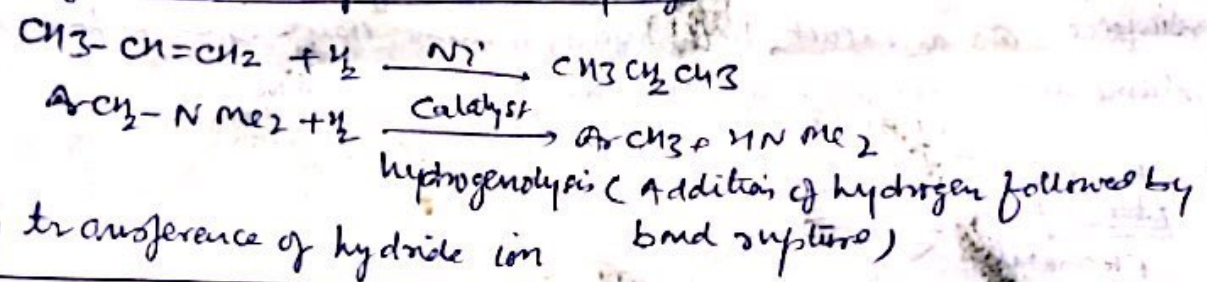 CH3-CH=CH2 + H2 Ni → CH3CH2CH3
ArCH2-NMe2 + H2 Catalyst → ArCH3 + HNMe2
hydrogenolysis (Addition of hydrogen followed by
bond rupture)
transference of hydride ion